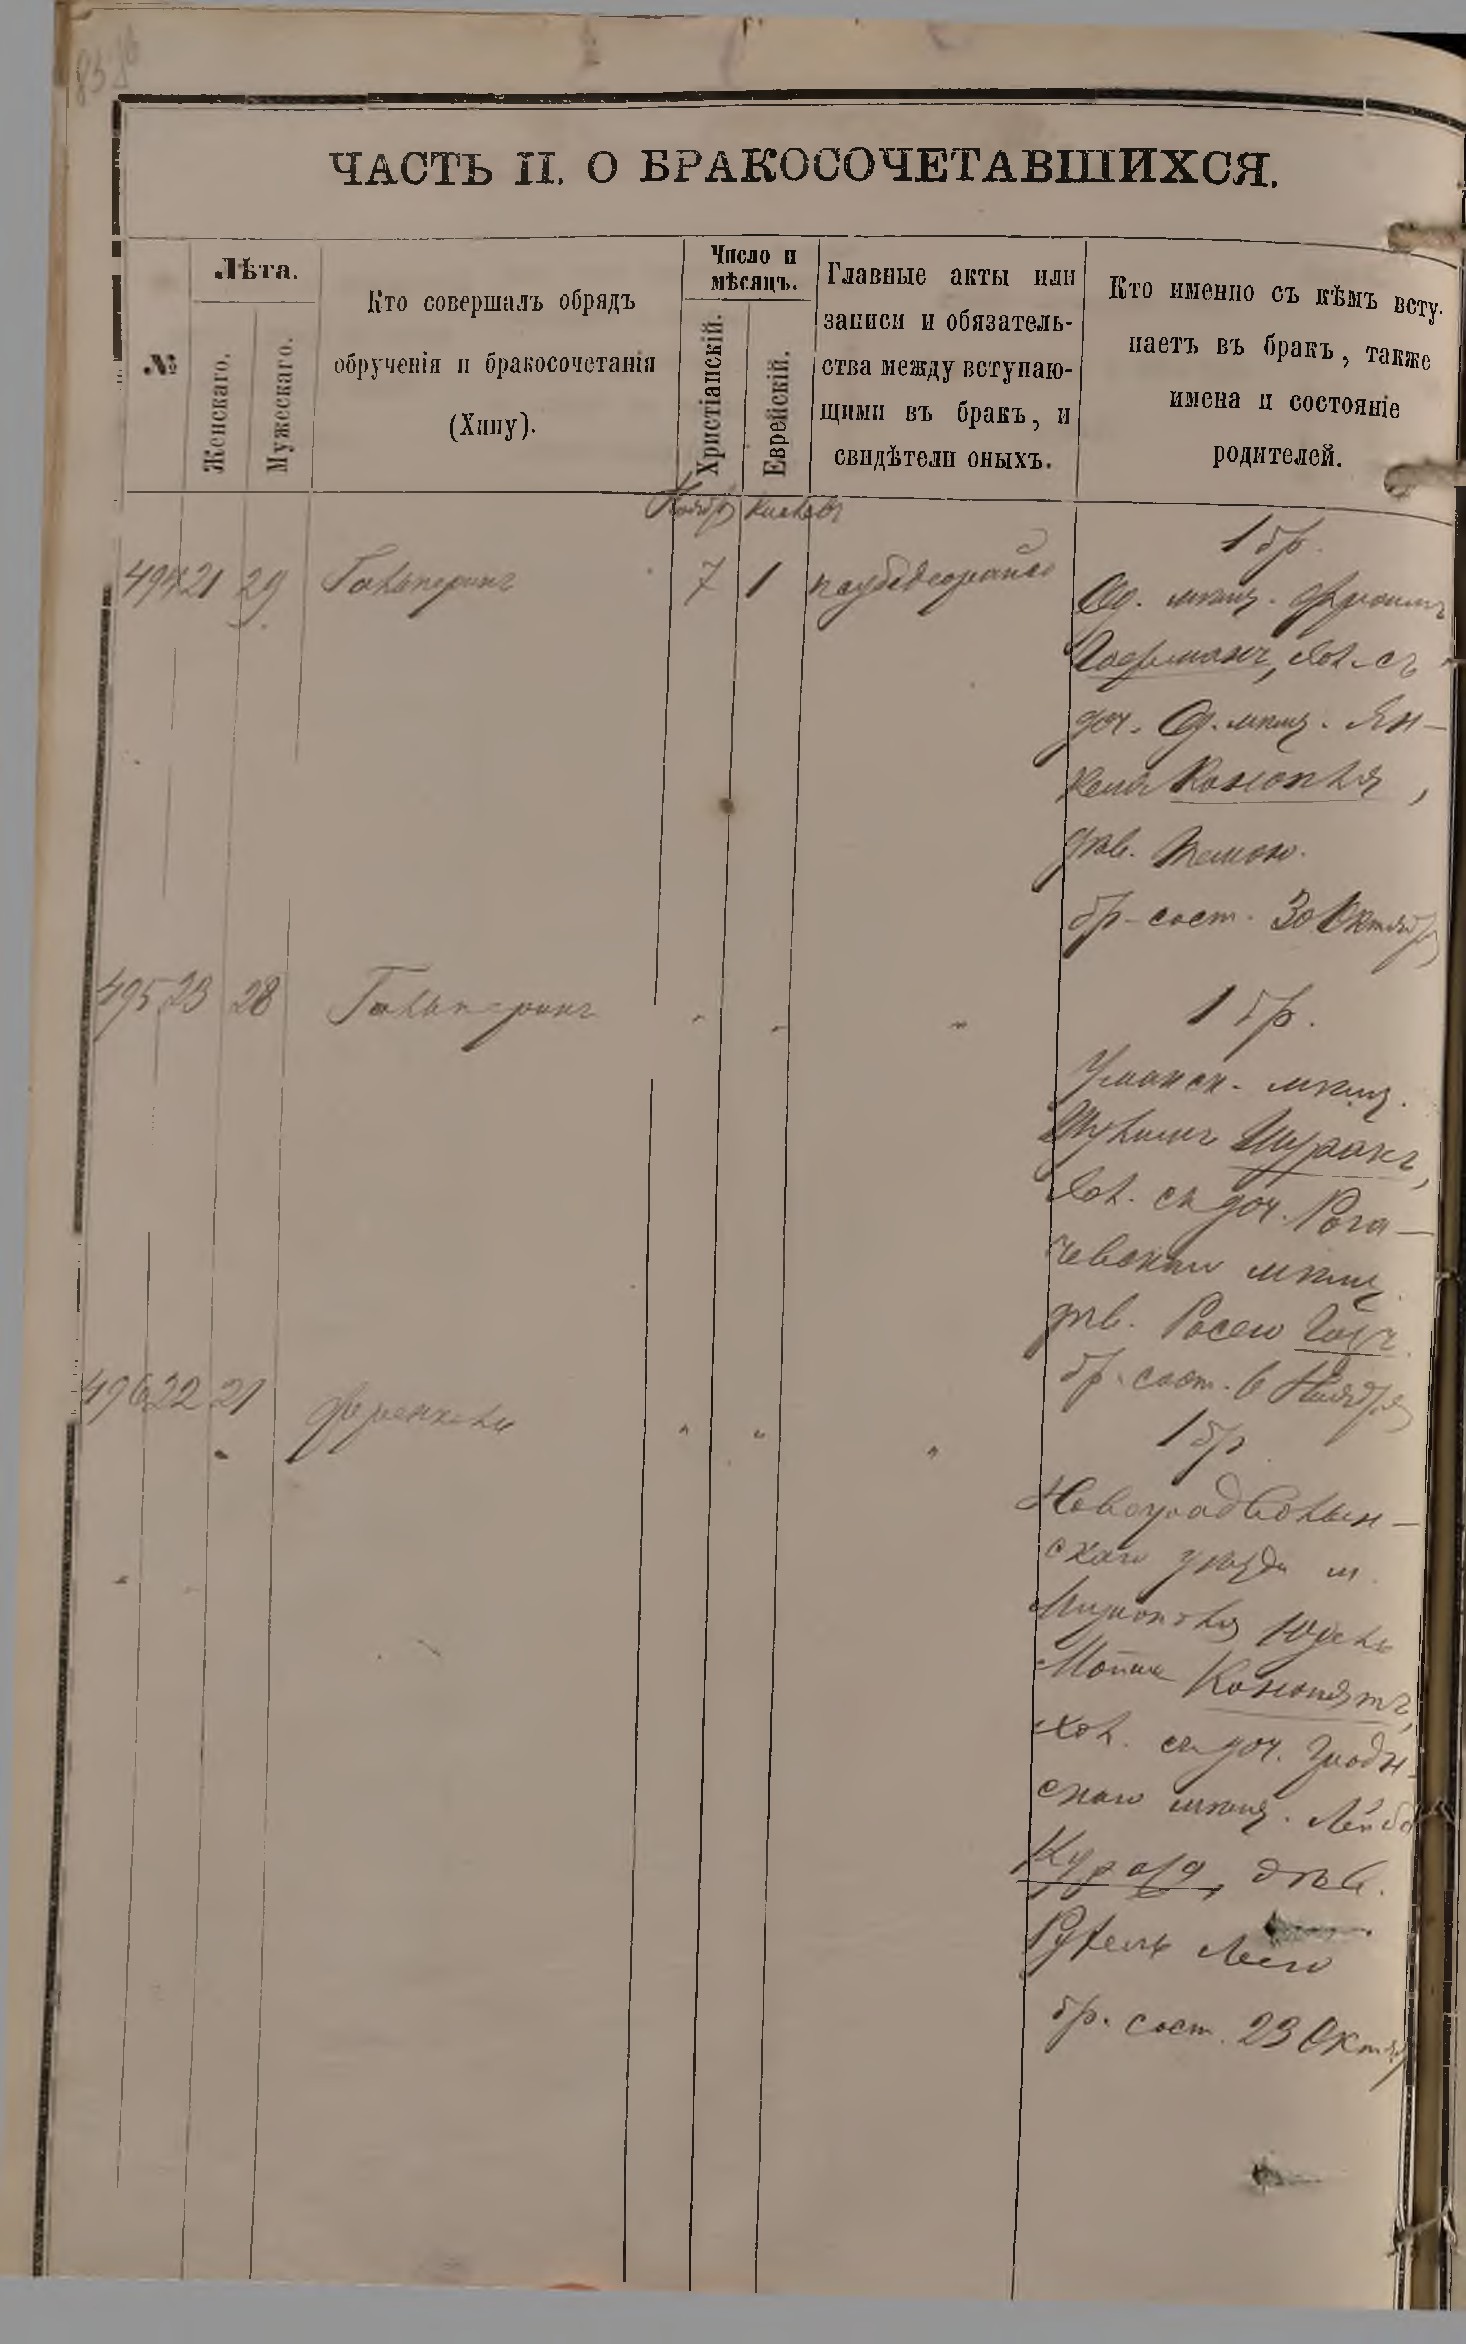 ЧАСТЬ II. О БРАКОСОЧЕТАВШИХСЯ.
№
Лѣта.
Женскаго.
Мужескаго.
Кто совершалъ обрядъ
обрученія и бракосочетанія
(Хипу).
Число и
мѣсяцъ.
Христіанскій.
Еврейскій.
Главные акты или
записи и обязатель-
ства между вступаю-
щими въ бракъ, и
свидѣтели оныхъ.
Кто именно съ кѣмъ всту-
паетъ въ бракъ, также
имена и состояніе
родителей.
Ноябр Кислевъ
494 21 29 Гальперинъ 7 1
1 бр.
Од. мѣщ. Фроимъ
Гоерманъ, хол. съ
доч. Од. мѣщ. Ян-
келя Конопка,
дѣв.
бр. сост. 30 Октябр
495 23 28 Гальперинъ " " "
1 бр.
Уманск. мѣщ.
Шулимъ
хол. съ доч. Рога-
чевскаго мѣщ.
дѣв. Росею
бр. сост. 6 Ноября
496 22 21 " " "
1 бр
Новоградволын-
скаго уѣзда м.
Мирополья Юдель
Мошко Конопятъ,
хол. съ доч. Гродн-
скаго мѣщ. Лейба
дѣв.
Рухель Лею
бр. сост. 23 Октяб